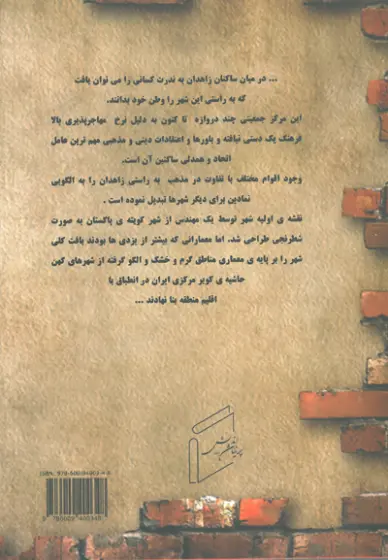 ... در میان ساکنان زاهدان به ندرت کسانی را می توان یافت
که به راستی این شهر را وطن خود بدانند.
این مرکز جمعیتی چند دروازه تا کنون به دلیل نرخ مهاجرپذیری بالا
فرهنگ یک دستی نیافته و باورها و اعتقادات دینی و مذهبی مهم ترین عامل
اتحاد و همدلی ساکنین آن است.
وجود اقوام مختلف با تفاوت در مذهب به راستی زاهدان را به الگویی
نمادین برای دیگر شهرها تبدیل نموده است .
نقشه ی اولیه شهر توسط یک مهندس از شهر کویته ی پاکستان به صورت
شطرنجی طراحی شد. اما معمارانی که بیشتر از یزدی ها بودند بافت کلی
شهر را بر پایه ی معماری مناطق گرم و خشک و الگو گرفته از شهرهای کهن
حاشیه ی کویر مرکزی ایران در انطباق با
اقلیم منطقه بنا نهادند ...